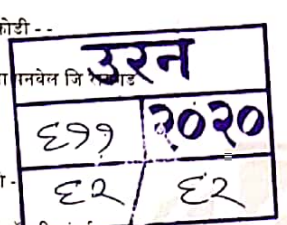 कोडी - -
उरन
पनवेल जि
६११ २०२०
६२ ६२